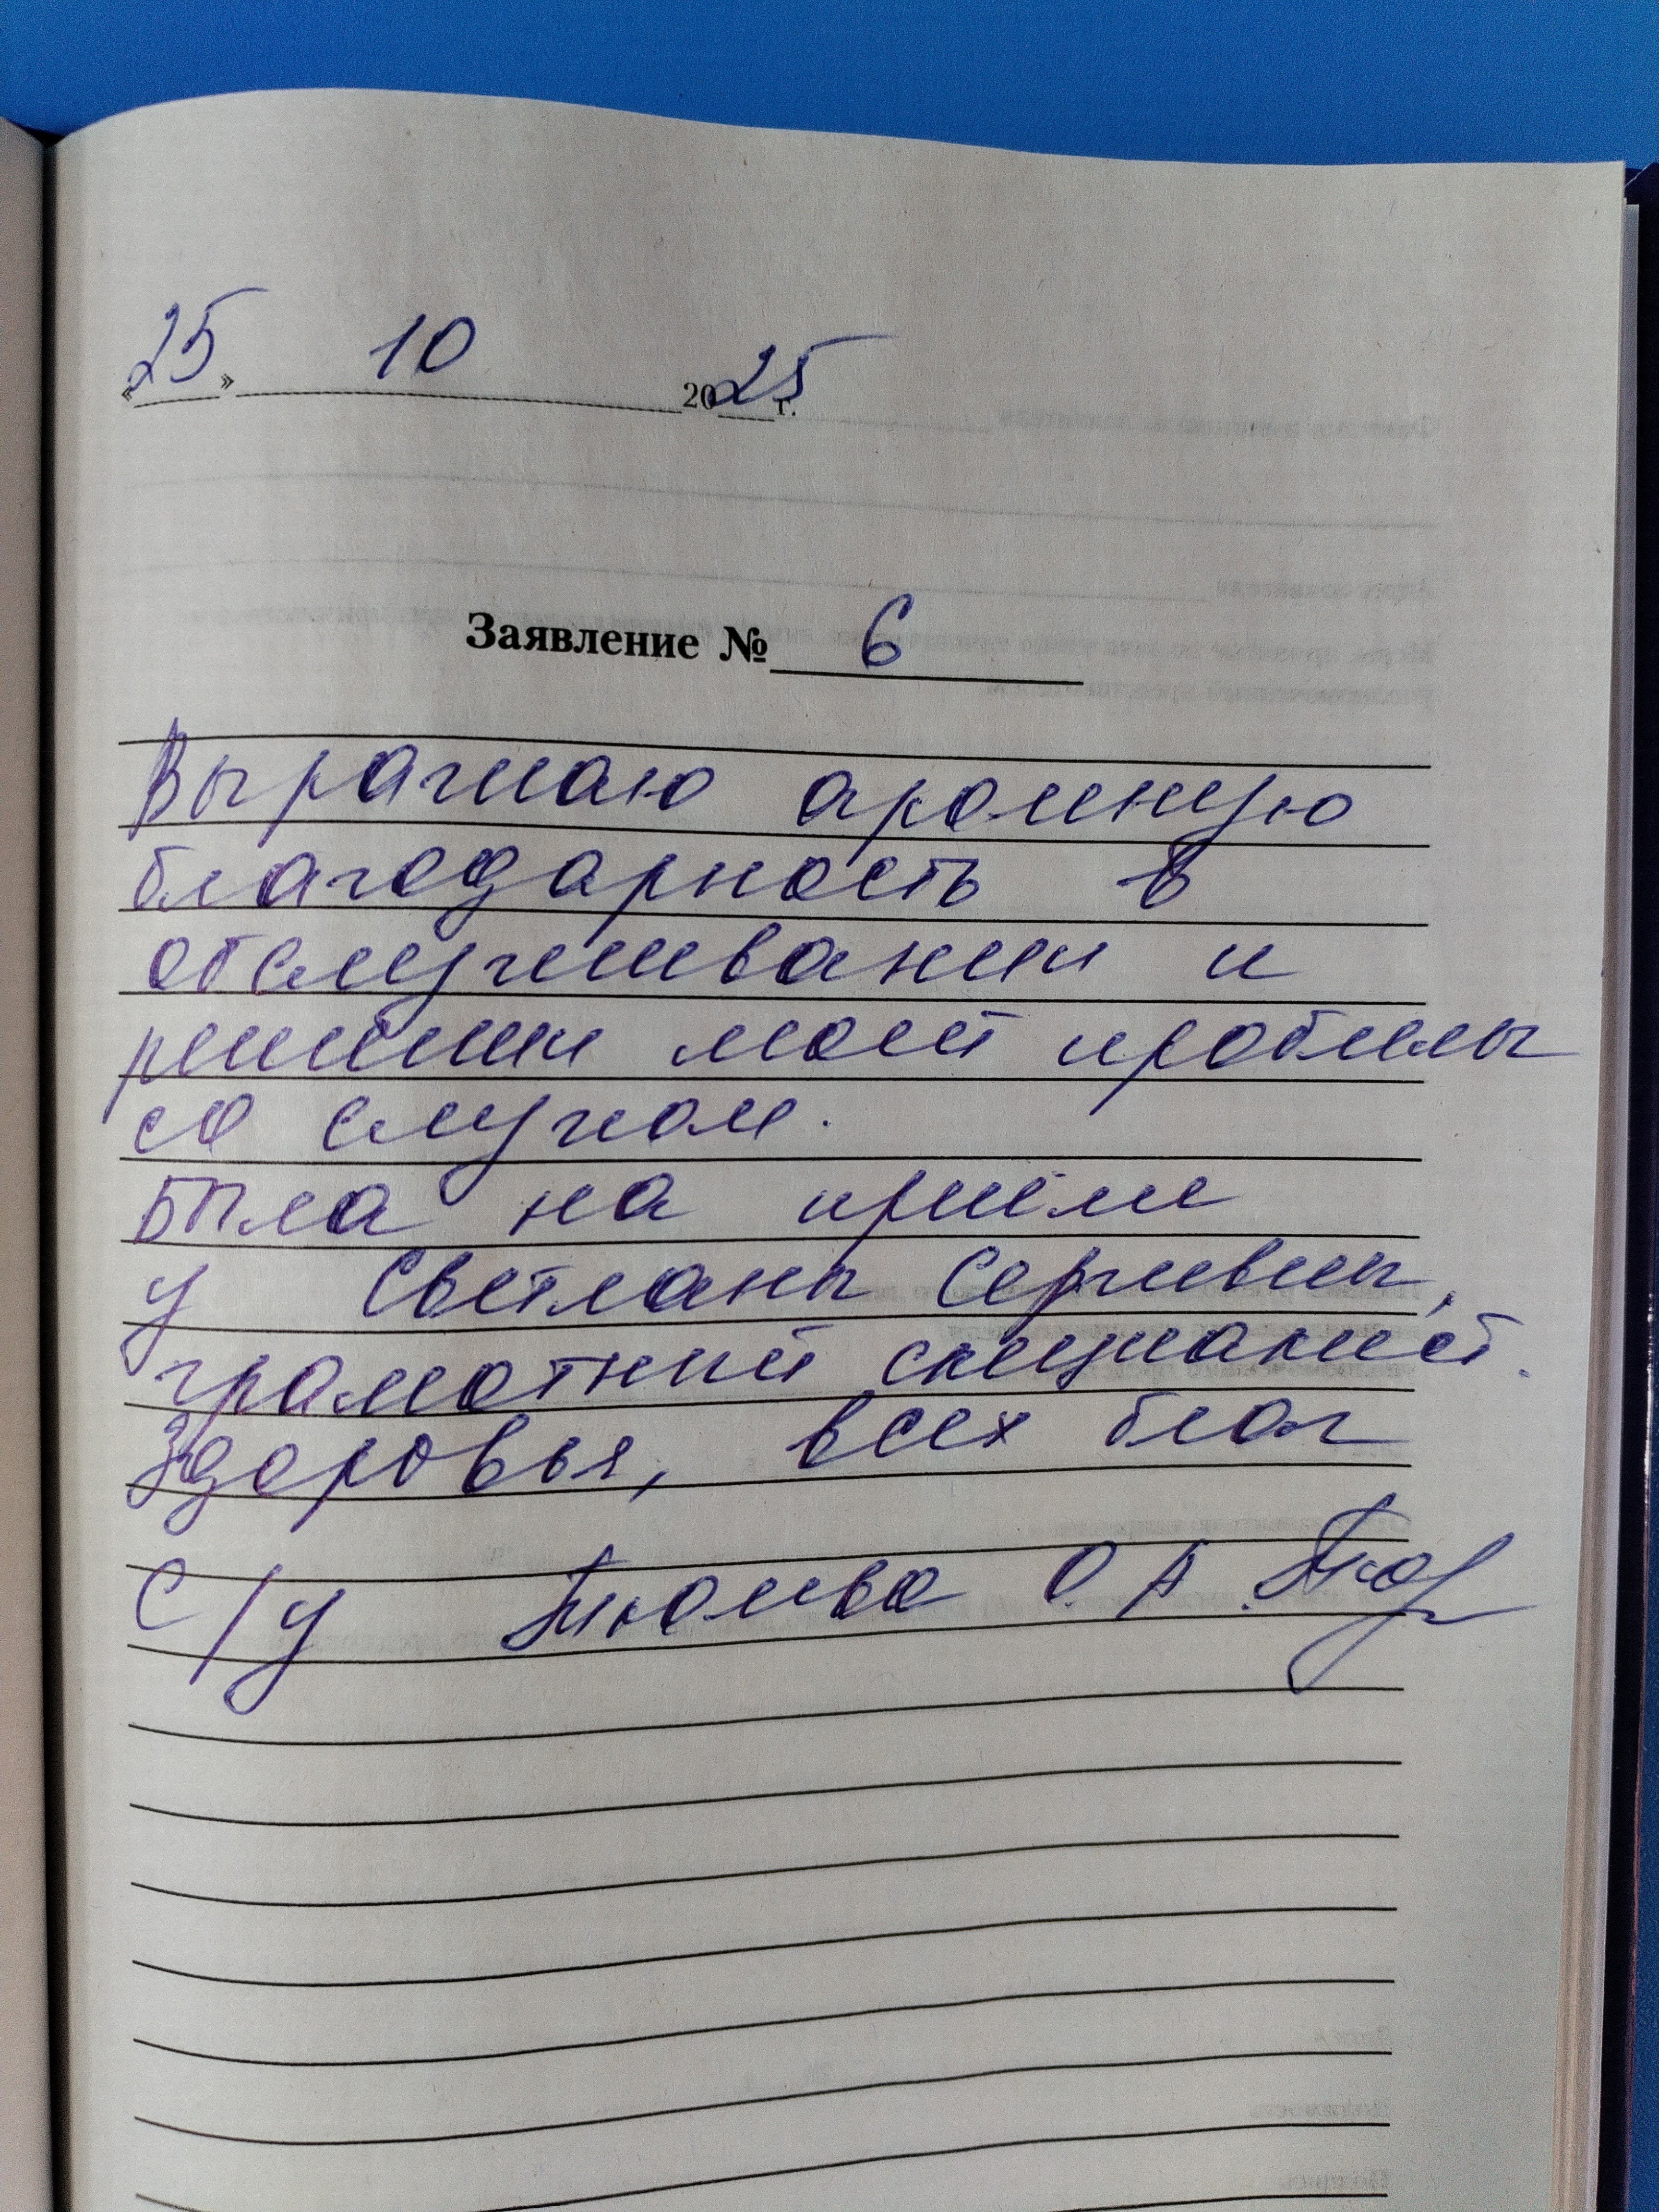 «25» 10 2025 г.
Заявление № 6
Выражаю громную
благодарность в
обслуживании и
решении моей проблемы
со слухом.
Была на приёме
у Светланы Сергеевны,
грамотный специалист.
Здоровья, всех благ
С/у О. А.